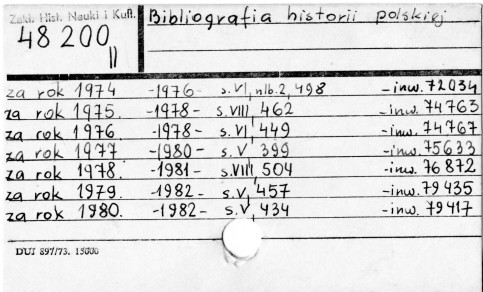 Zakł. Hist. Nauki i Kult.
48 200
II
Bibliografia historii polskiej
za rok 1974 -1976- s. VI, nlb. 2, 498 -inw. 72034
za rok 1975. -1978- s. VIII, 462 -inw. 74763
za rok 1976 -1978- s. VI, 449 -inw. 74767
za rok 1977 -1980- s. V, 399 -inw. 75633
za rok 1978. -1981- s. VIII, 504 -inw. 76872
za rok 1979. -1982- s. V, 457 -inw. 79435
za rok 1980. -1982- s. V, 434 -inw. 79417
DUI 897/73. 15000